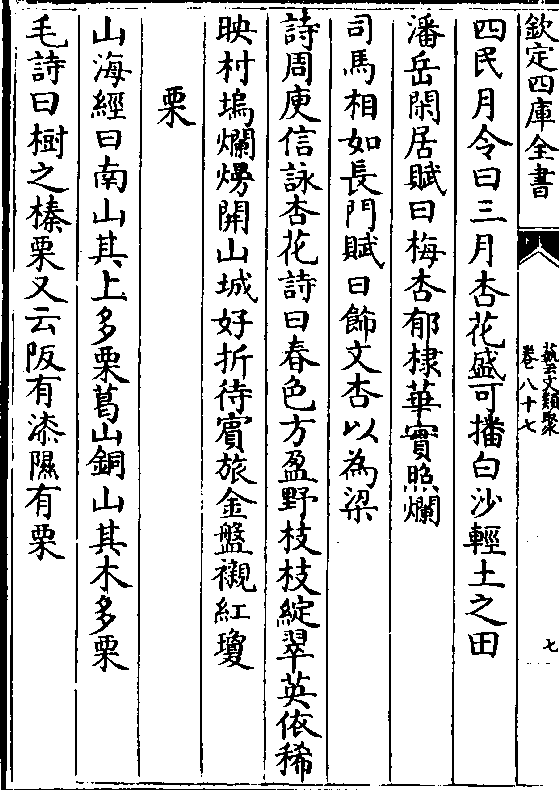 欽定四庫全書
藝文類聚
卷八十七
七
四民月令曰三月杏花盛可播白沙輕土之田
潘岳閑居賦曰梅杏郁棣華實照爛
司馬相如長門賦曰飾文杏以為梁
詩周庾信詠杏花詩曰春色方盈野枝枝綻翠英依稀
映村塢爛熳開山城好折待賓旅金盤襯紅瓊
栗
山海經曰南山其上多栗葛山銅山其木多栗
毛詩曰樹之榛栗又云阪有漆隰有栗